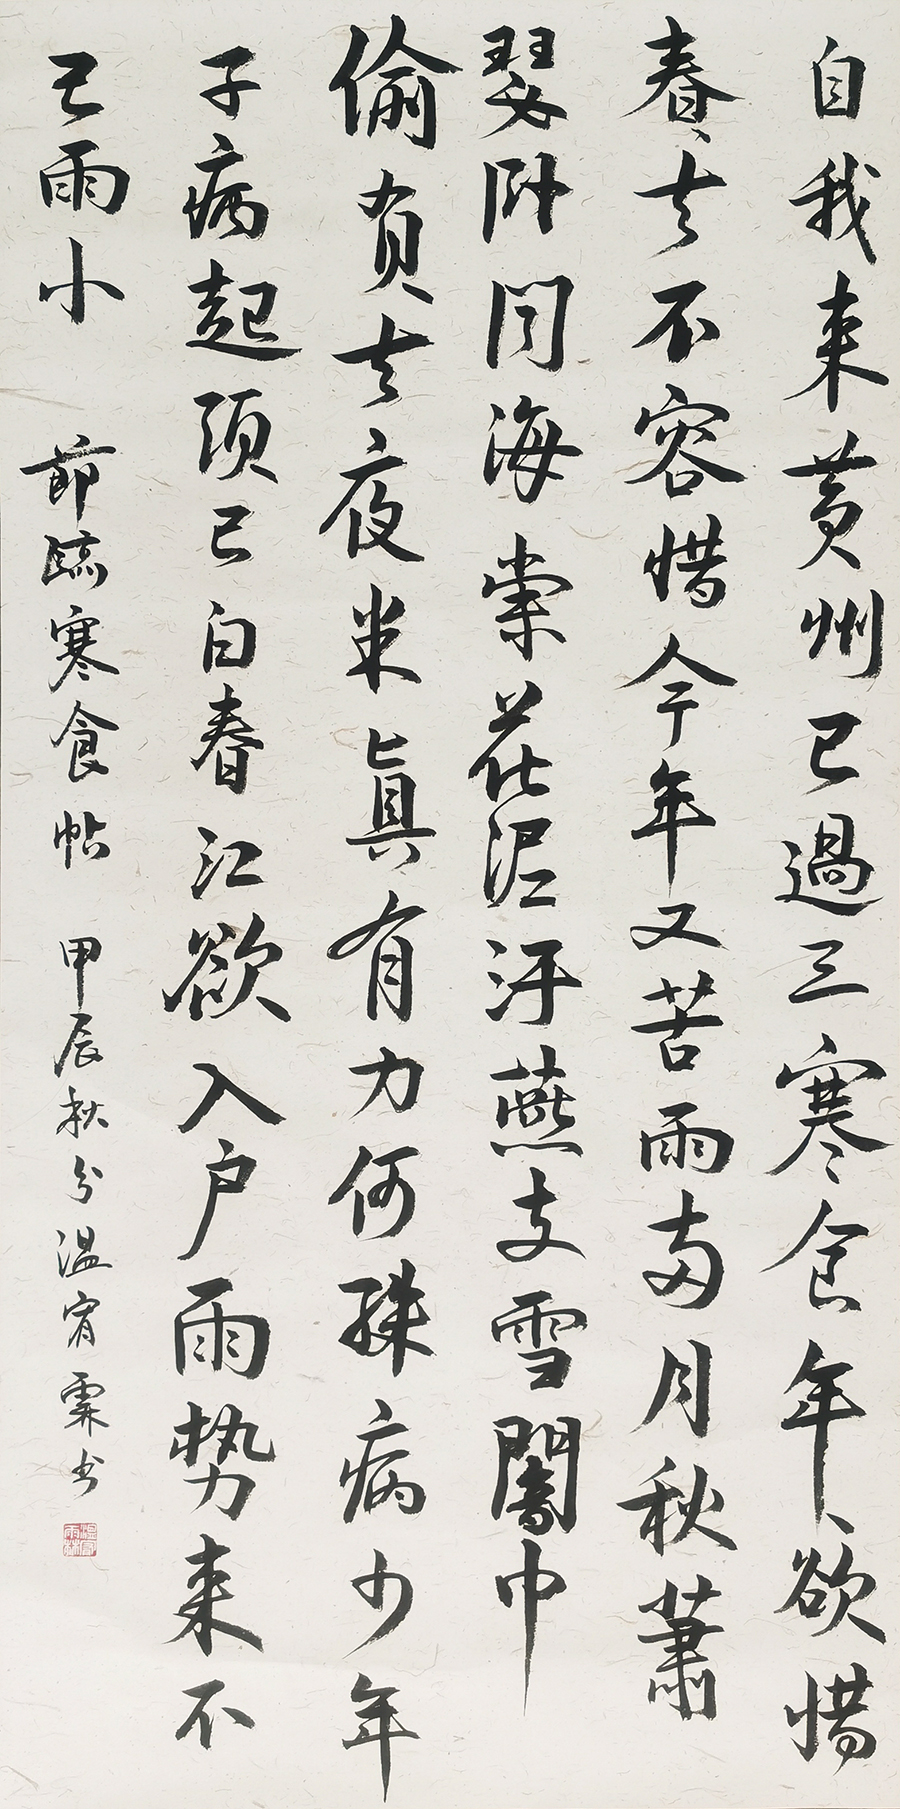 自我来黄州已過三寒食年、欲惜
春、去不容惜今年又苦雨两月秋蕭
瑟卧聞海棠花泥汙燕支雪闇中
偷負去夜半真有力何殊病少年
子病起頭已白春江欲入户雨势来不
已雨小
節臨寒食帖 甲辰秋分温宥霖书
温宥霖